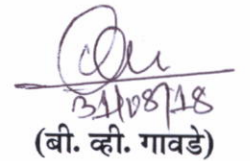 31/08/18
(बी. व्ही. गावडे)